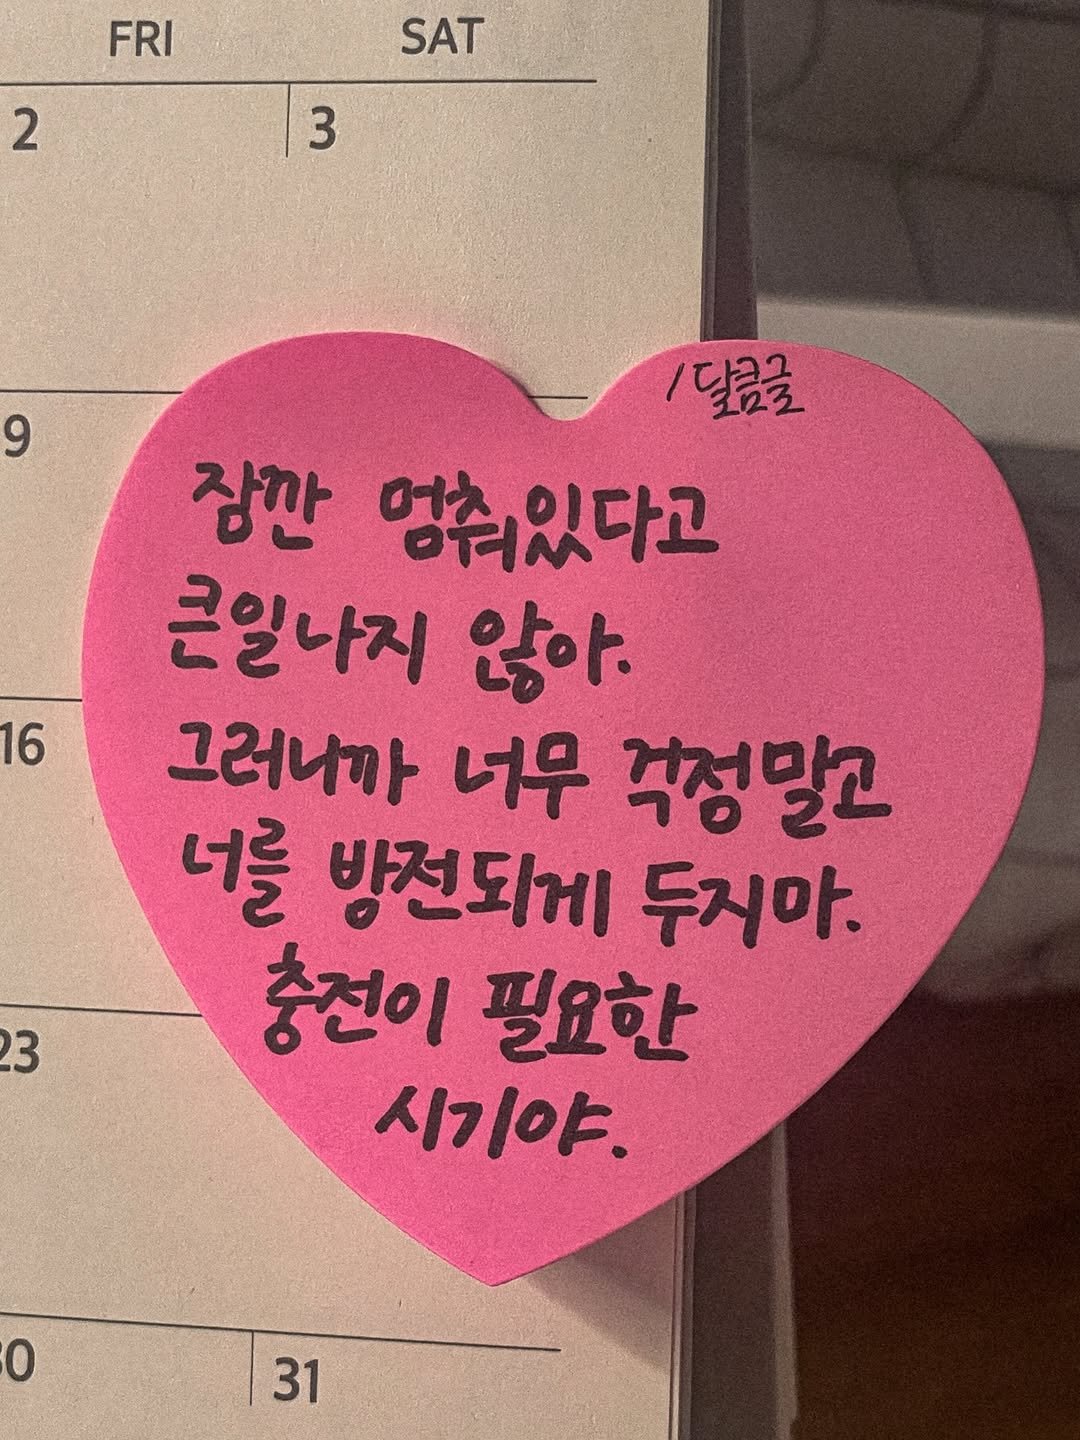 FRI SAT
2 3
/달콤글
9
잠깐 멈춰있다고
큰일나지 않아.
16
그러니까 너무 걱정말고
너를 방전되게 두지마.
충전이 필요한
23
시기야.
30 31